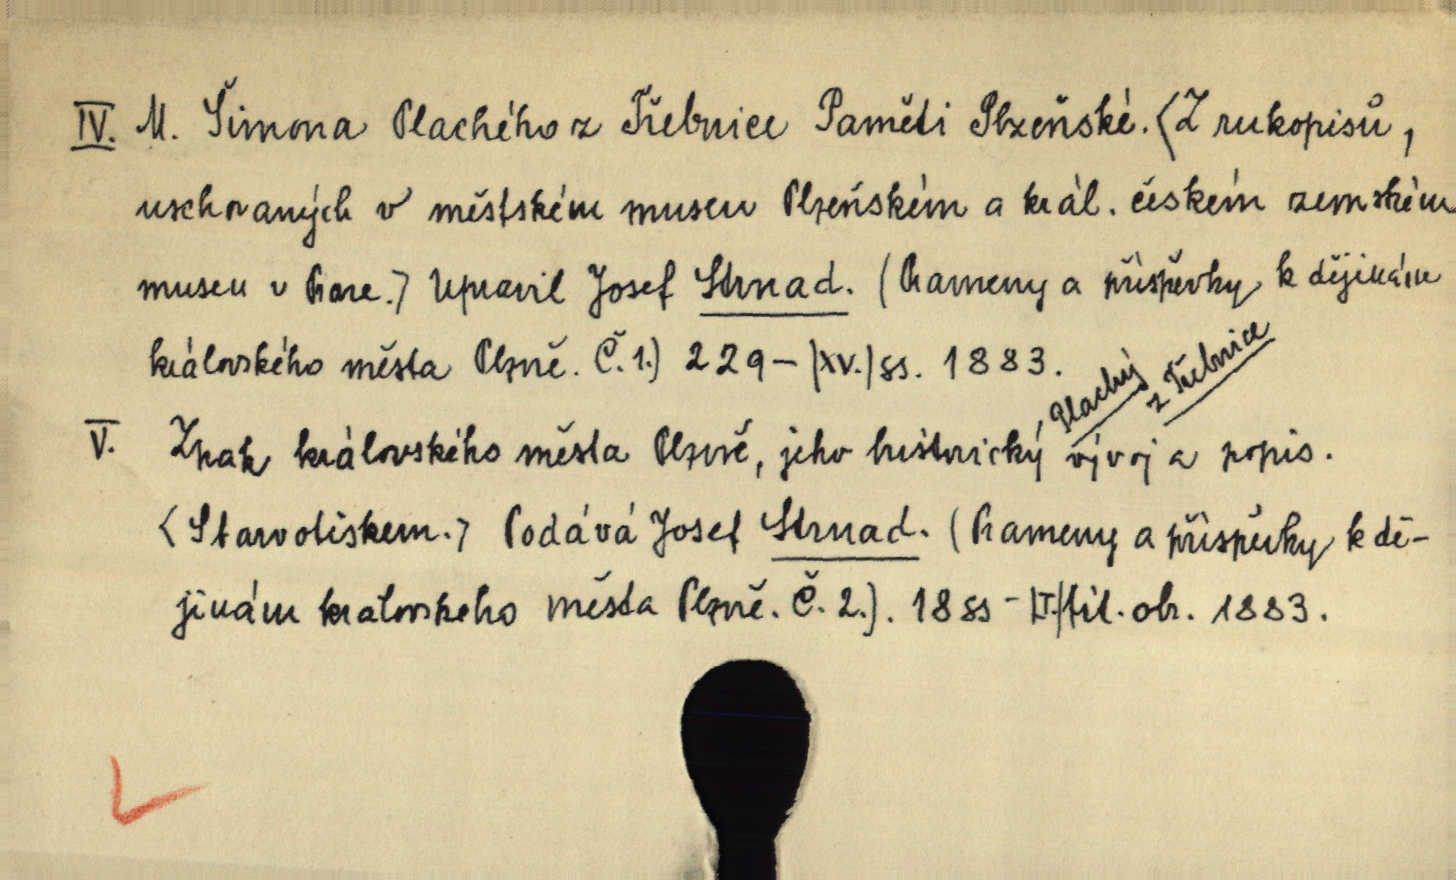 IV. M. Šimona Plachého z Třebnice Paměti Plzeňské. (Z rukopisů,
uschovaných v městském museu Plzeňském a král. českém zemském
museu v Praze.) Upravil Josef Strnad. (Prameny a příspěvky k dějinám
královského města Plzně. Č. 1.) 229 – |XV.| ss. 1883.
Plachý z Třebnice
V. Znak královského města Plzně, jeho historický vývoj a popis.
(Starotiskem.) Podává Josef Strnad. (Prameny a příspěvky k dě-
jinám kralovskeho města Plzně. Č. 2.). 18 ss – |I.| tit. obr. 1883.